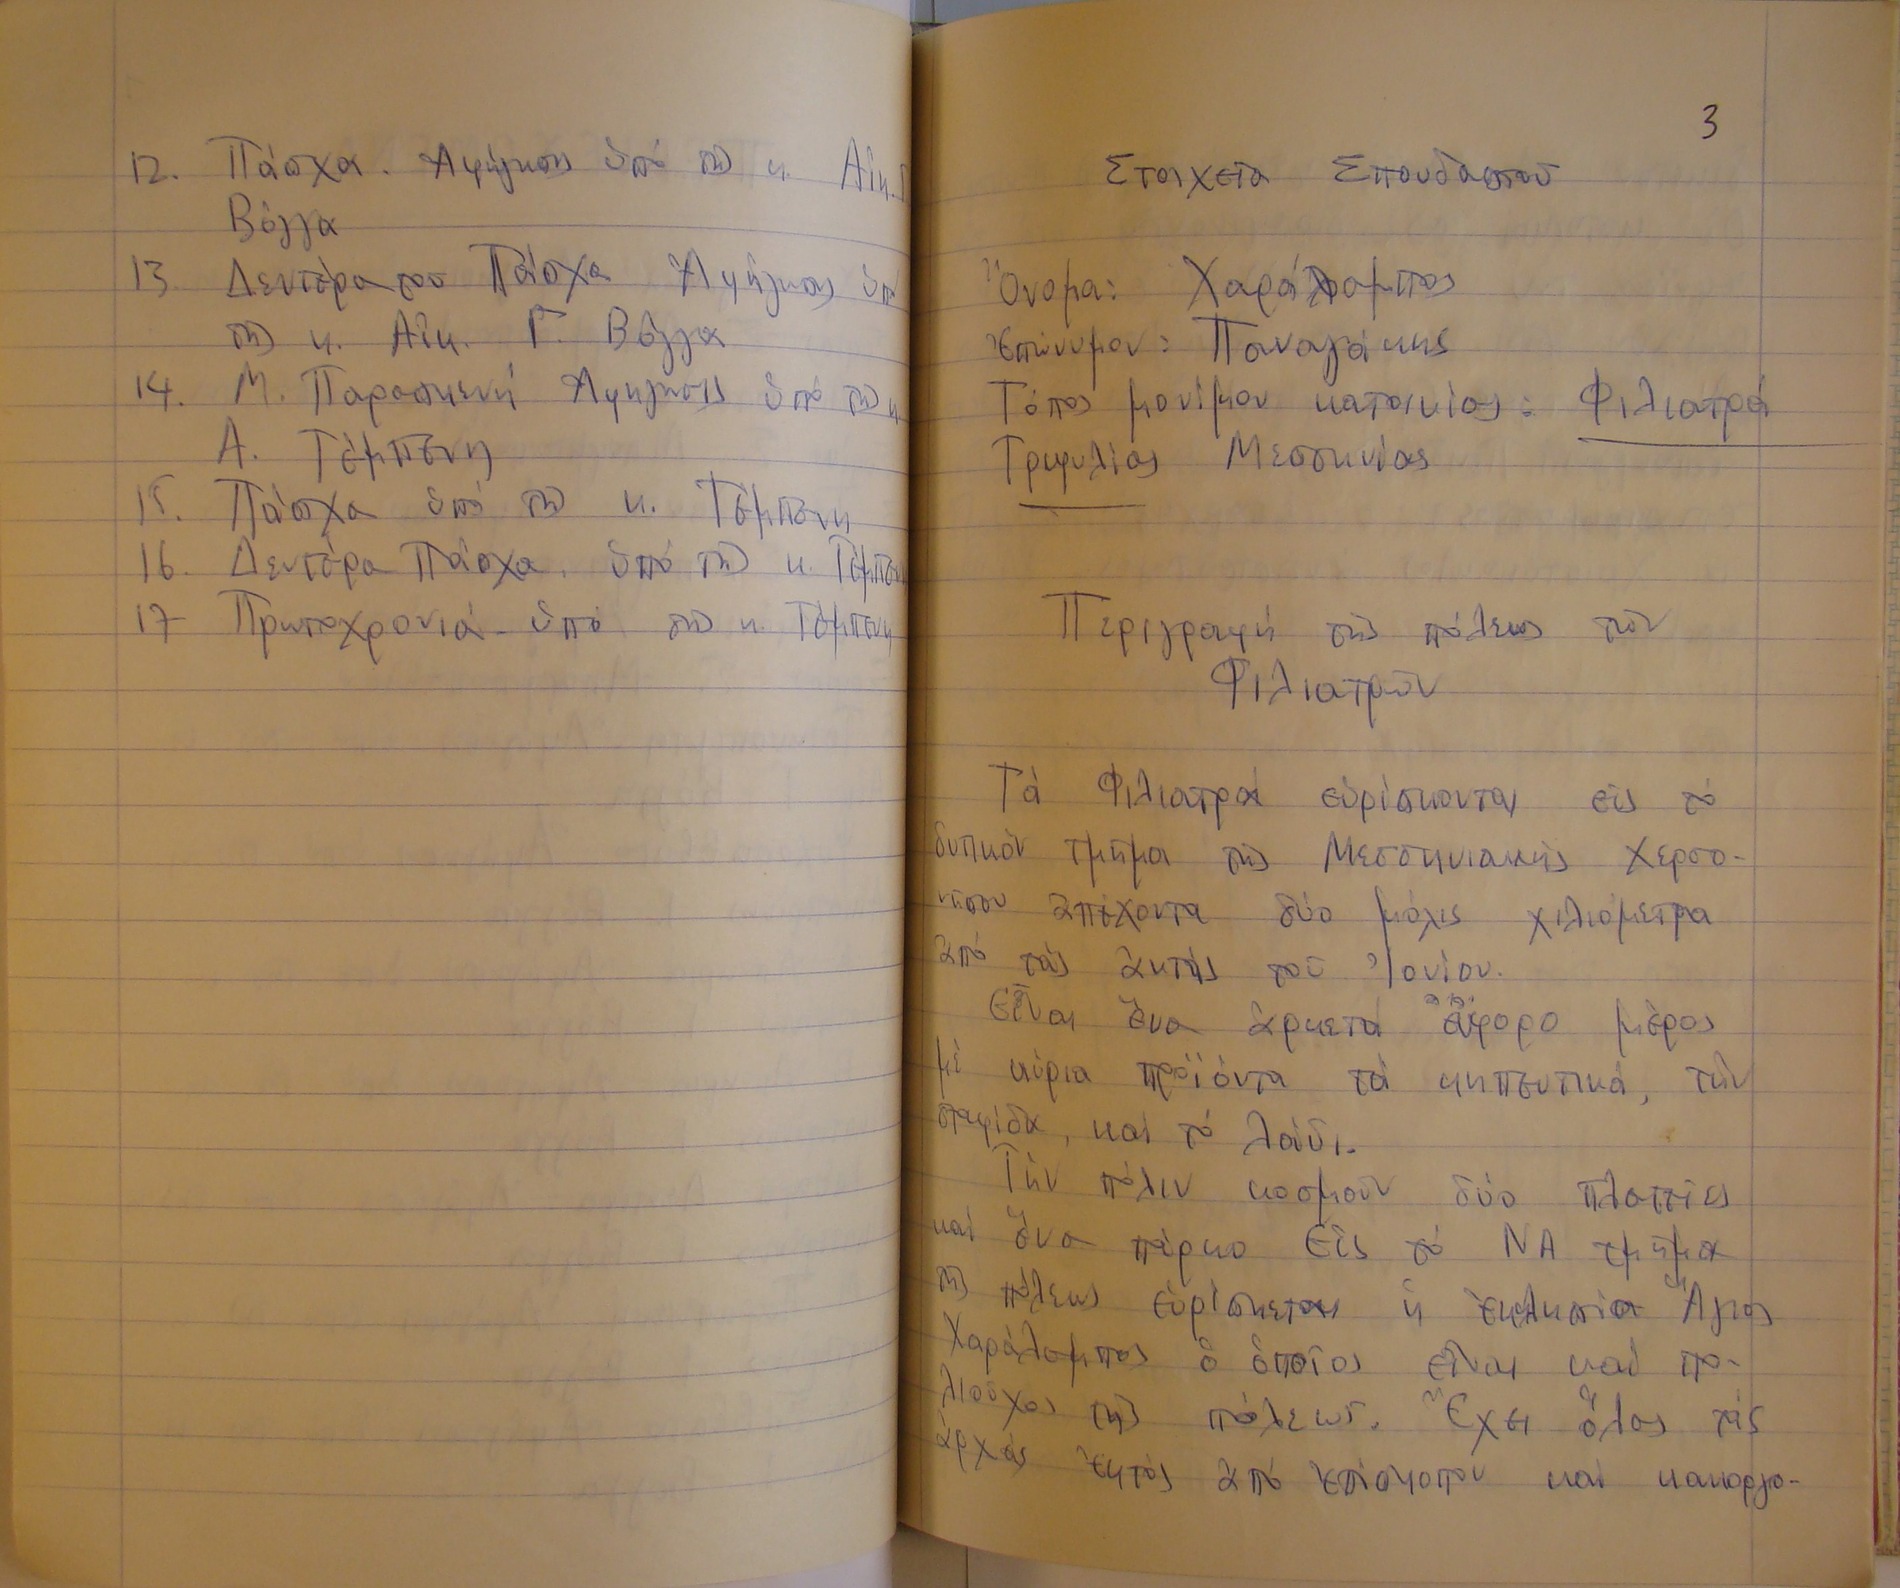 12. Πάσχα. Ἀφήγησις ὑπό τῆς κ. Αἰκ. Γ
Βόγγα
13 Δευτέρα του Πάσχα Ἀφήγησις ὑπό
τῆς κ. Αἰκ. Γ. Βόγγα
14. Μ. Παρασκευή Ἀφήγησις ὑπό τῆς κ
Α. Τέμπενη
15. Πάσχα ὑπό τῆς κ. Τέμπενη
16. Δευτέρα Πάσχα. ὑπό τῆς κ. Τέμπενη
17 Πρωτοχρονιά. ὑπό τῆς κ. Τέμπενη
3
Στοιχεῖα Σπουδαστοῦ
Ὄνομα: Χαράλαμπος
Ἐπώνυμον: Παναγάκης
Τόπος μονίμου κατοικίας: Φιλιατρά
Τριφυλίας Μεσσηνίας
Περιγραφή τῆς πόλεως τῶν
Φιλιατρῶν
Τά Φιλιατρά εὑρίσκονται εἰς τό
δυτικόν τμῆμα τῆς Μεσσηνιακῆς Χερσο-
νήσου ἀπέχοντα δύο μόλις χιλιόμετρα
ἀπό τάς ἀκτάς τοῦ Ἰονίου.
Εἶναι ἕνα ἀρκετά εὔφορο μέρος
μέ κύρια προϊόντα τά κηπευτικά, τήν
σταφίδα, καί τό λάδι.
Τήν πόλιν κοσμοῦν δύο πλατεῖες
καί ἕνα πάρκο Εἰς τό ΝΑ τμῆμα
τῆς πόλεως εὑρίσκεται ἡ ἐκκλησία Ἅγιος
Χαράλαμπος ὁ ὁποῖος εἶναι καί πο-
λιοῦχος τῆς πόλεως. Ἔχει ὅλας τάς
ἀρχάς ἐκτός ἀπό ἐπίσκοπον καί κακοργο-